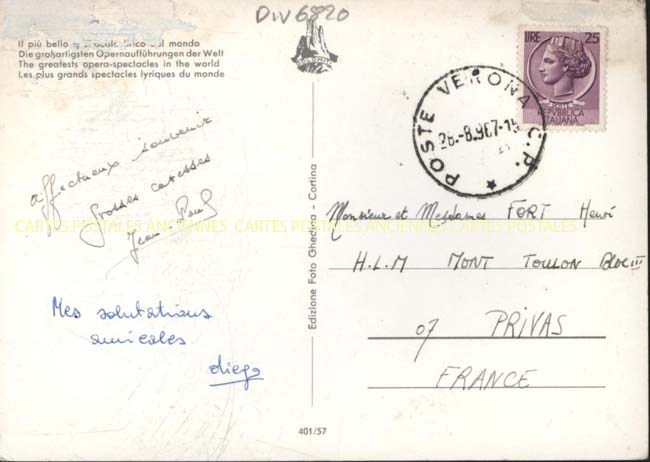 DIV6820
Il più bello spettacolo lirico del mondo
Die großartigsten Opernaufführungen der Welt
The greatests opera-spectacles in the world
Les plus grands spectacles lyriques du monde
DOLOMITI
LIRE 25
POSTE
REPVBBLICA
ITALIANA
POSTE VERONA C.P.
26.-8.967-15
affectueux souvenir
Grosses caresses
Jean Paul
CARTES POSTALES ANCIENNES CARTES POSTALES ANCIENNES CARTES POSTALES
Mes salutations
amicales
diego
Edizione Foto Ghedina - Cortina
Monsieur et Mesdames FORT Henri
H.L.M MONT TOULON BLOC III
07 PRIVAS
FRANCE
401/57